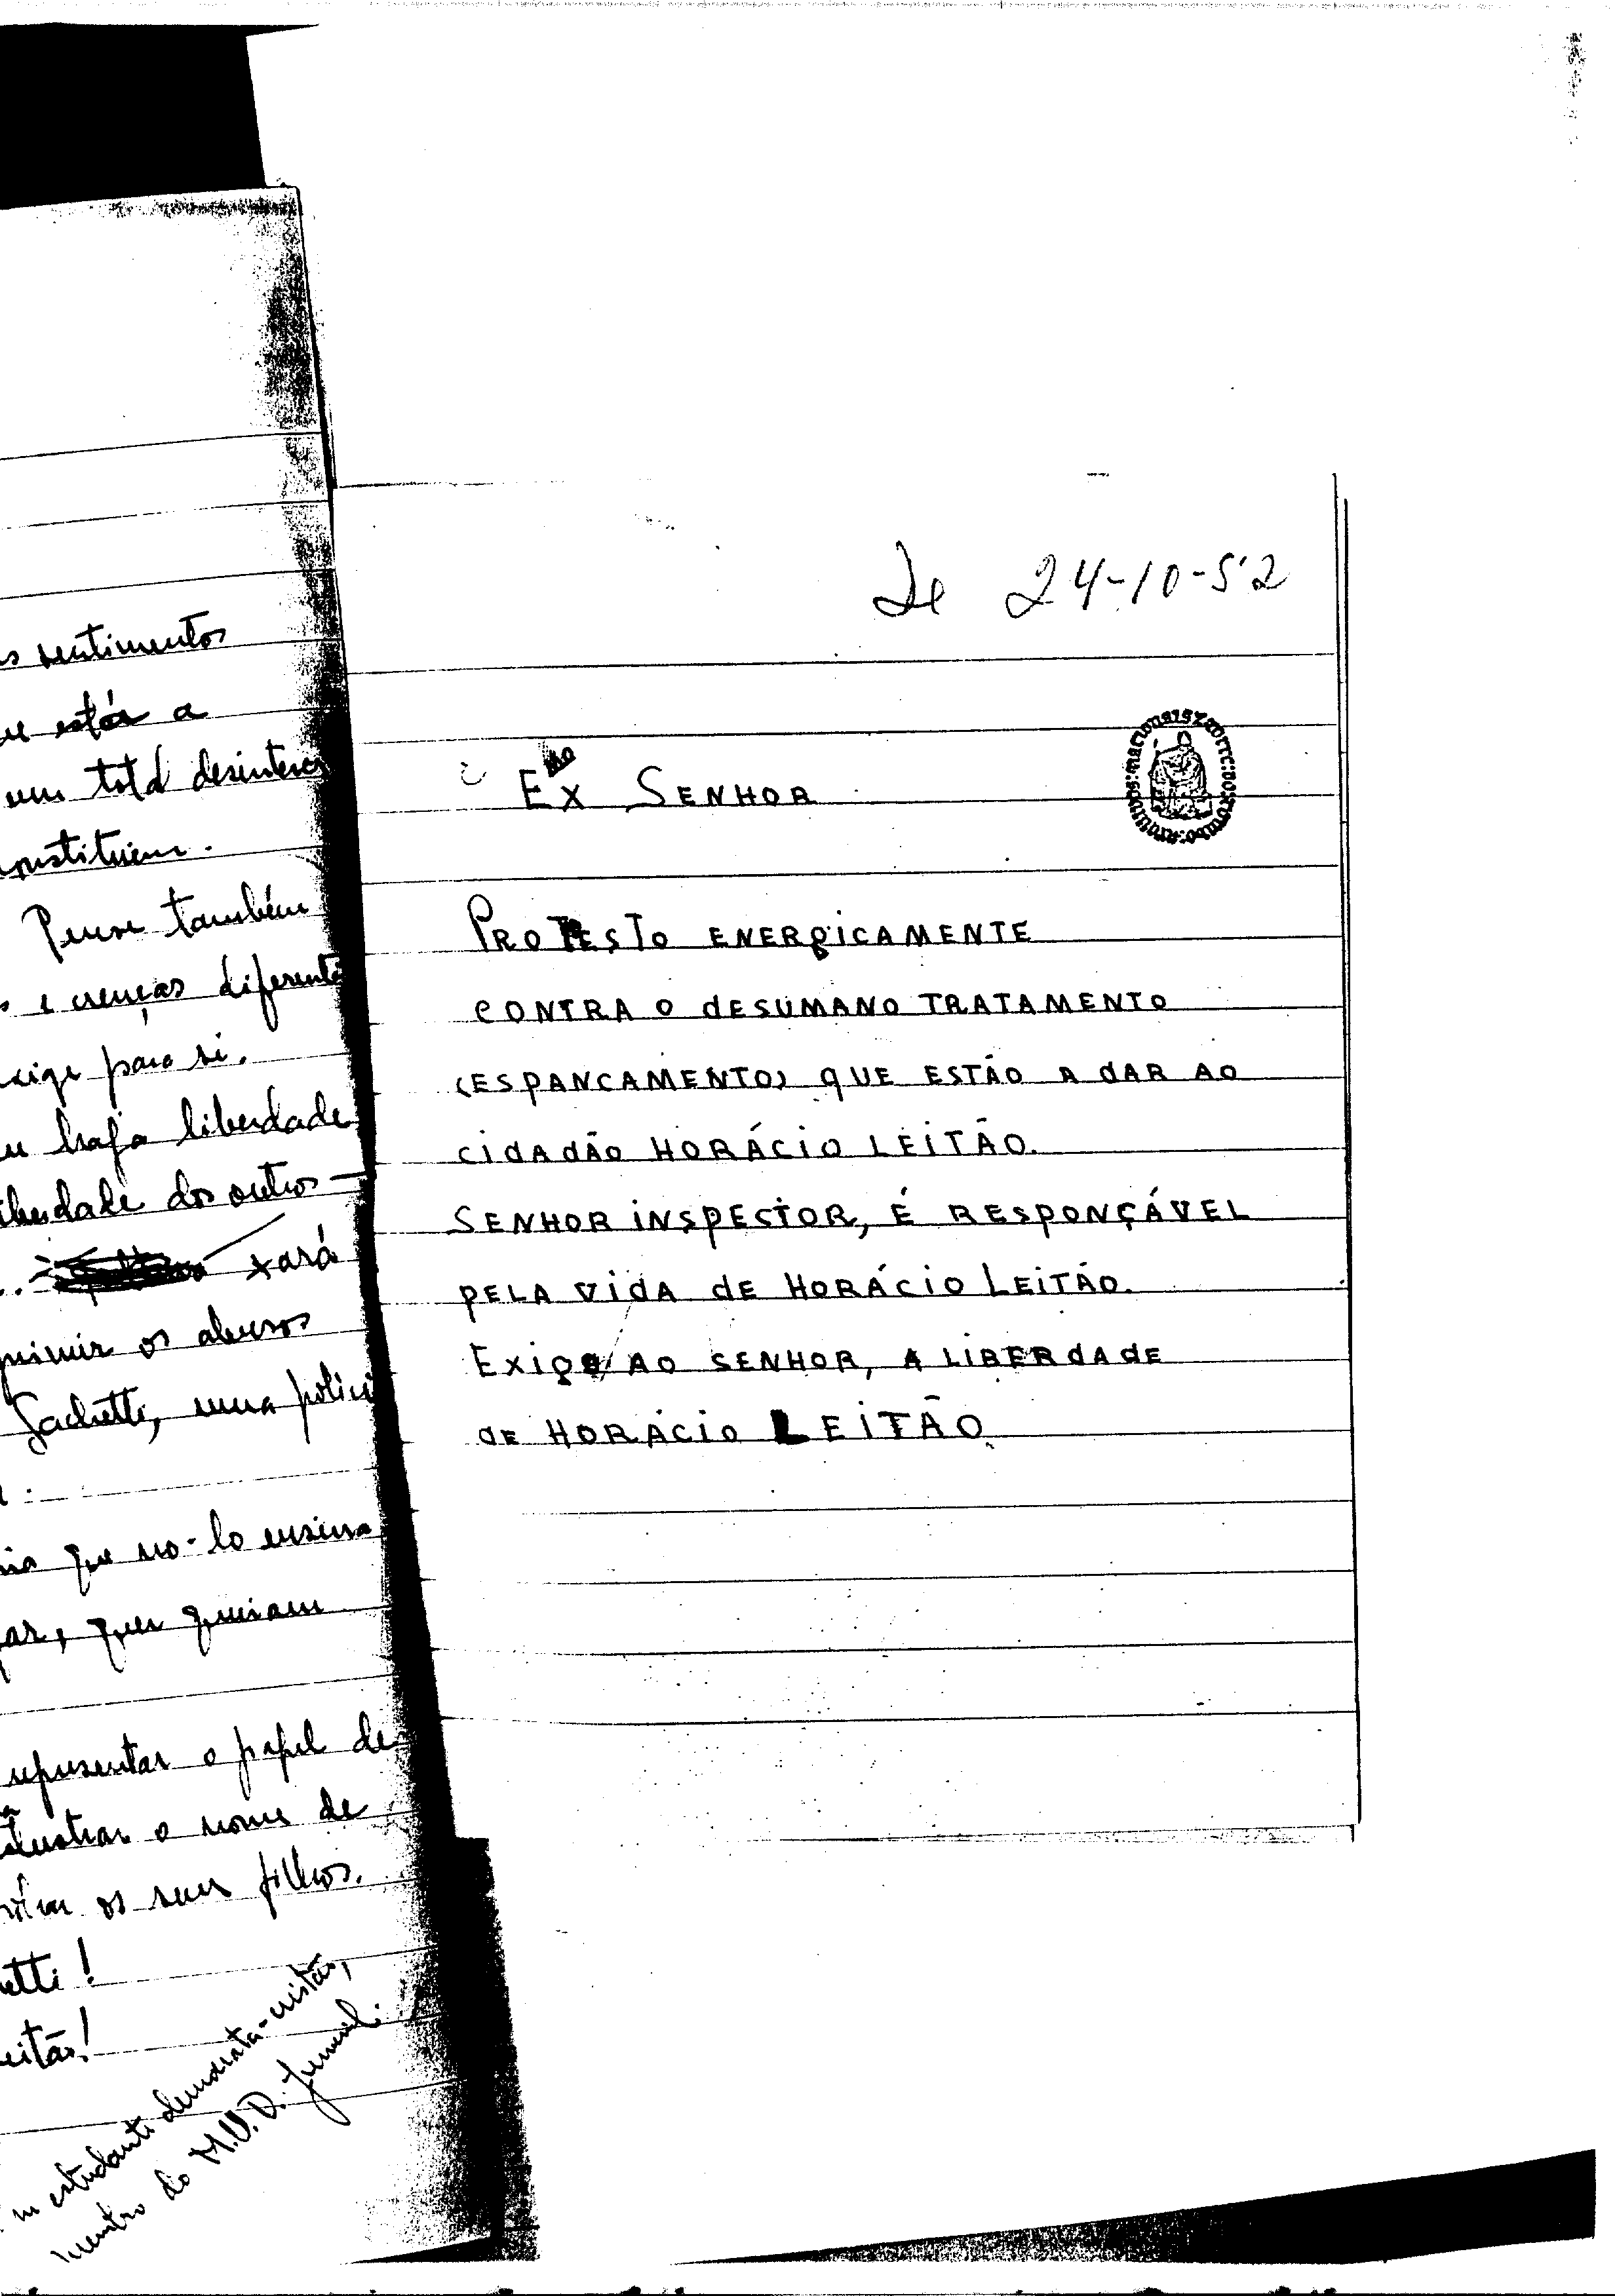 s sentimentos
ue estão a
um total desinteres
onstituiem.
Pense também
s e crenças diferente
xige para si.
liberdade
iberdade dos outros —
xará
primir os abusos
Sachetti, uma polici
ia que no-lo ensina
ar, quer queiram
representar o papel de
o nome de
os seus filhos.
etti!
eitão!
m estudante democrata-cristão,
membro do M.U.D. Juvenil.
De 24-10-52
Exmo SENHOR
PROTESTO ENERGICAMENTE
CONTRA O DESUMANO TRATAMENTO
(ESPANCAMENTO) QUE ESTÃO A DAR AO
CIDADÃO HORÁCIO LEITÃO.
SENHOR INSPECTOR, É RESPONÇÁVEL
PELA VIDA DE HORÁCIO LEITÃO.
EXIGE AO SENHOR, A LIBERDADE
DE HORÁCIO LEITÃO.